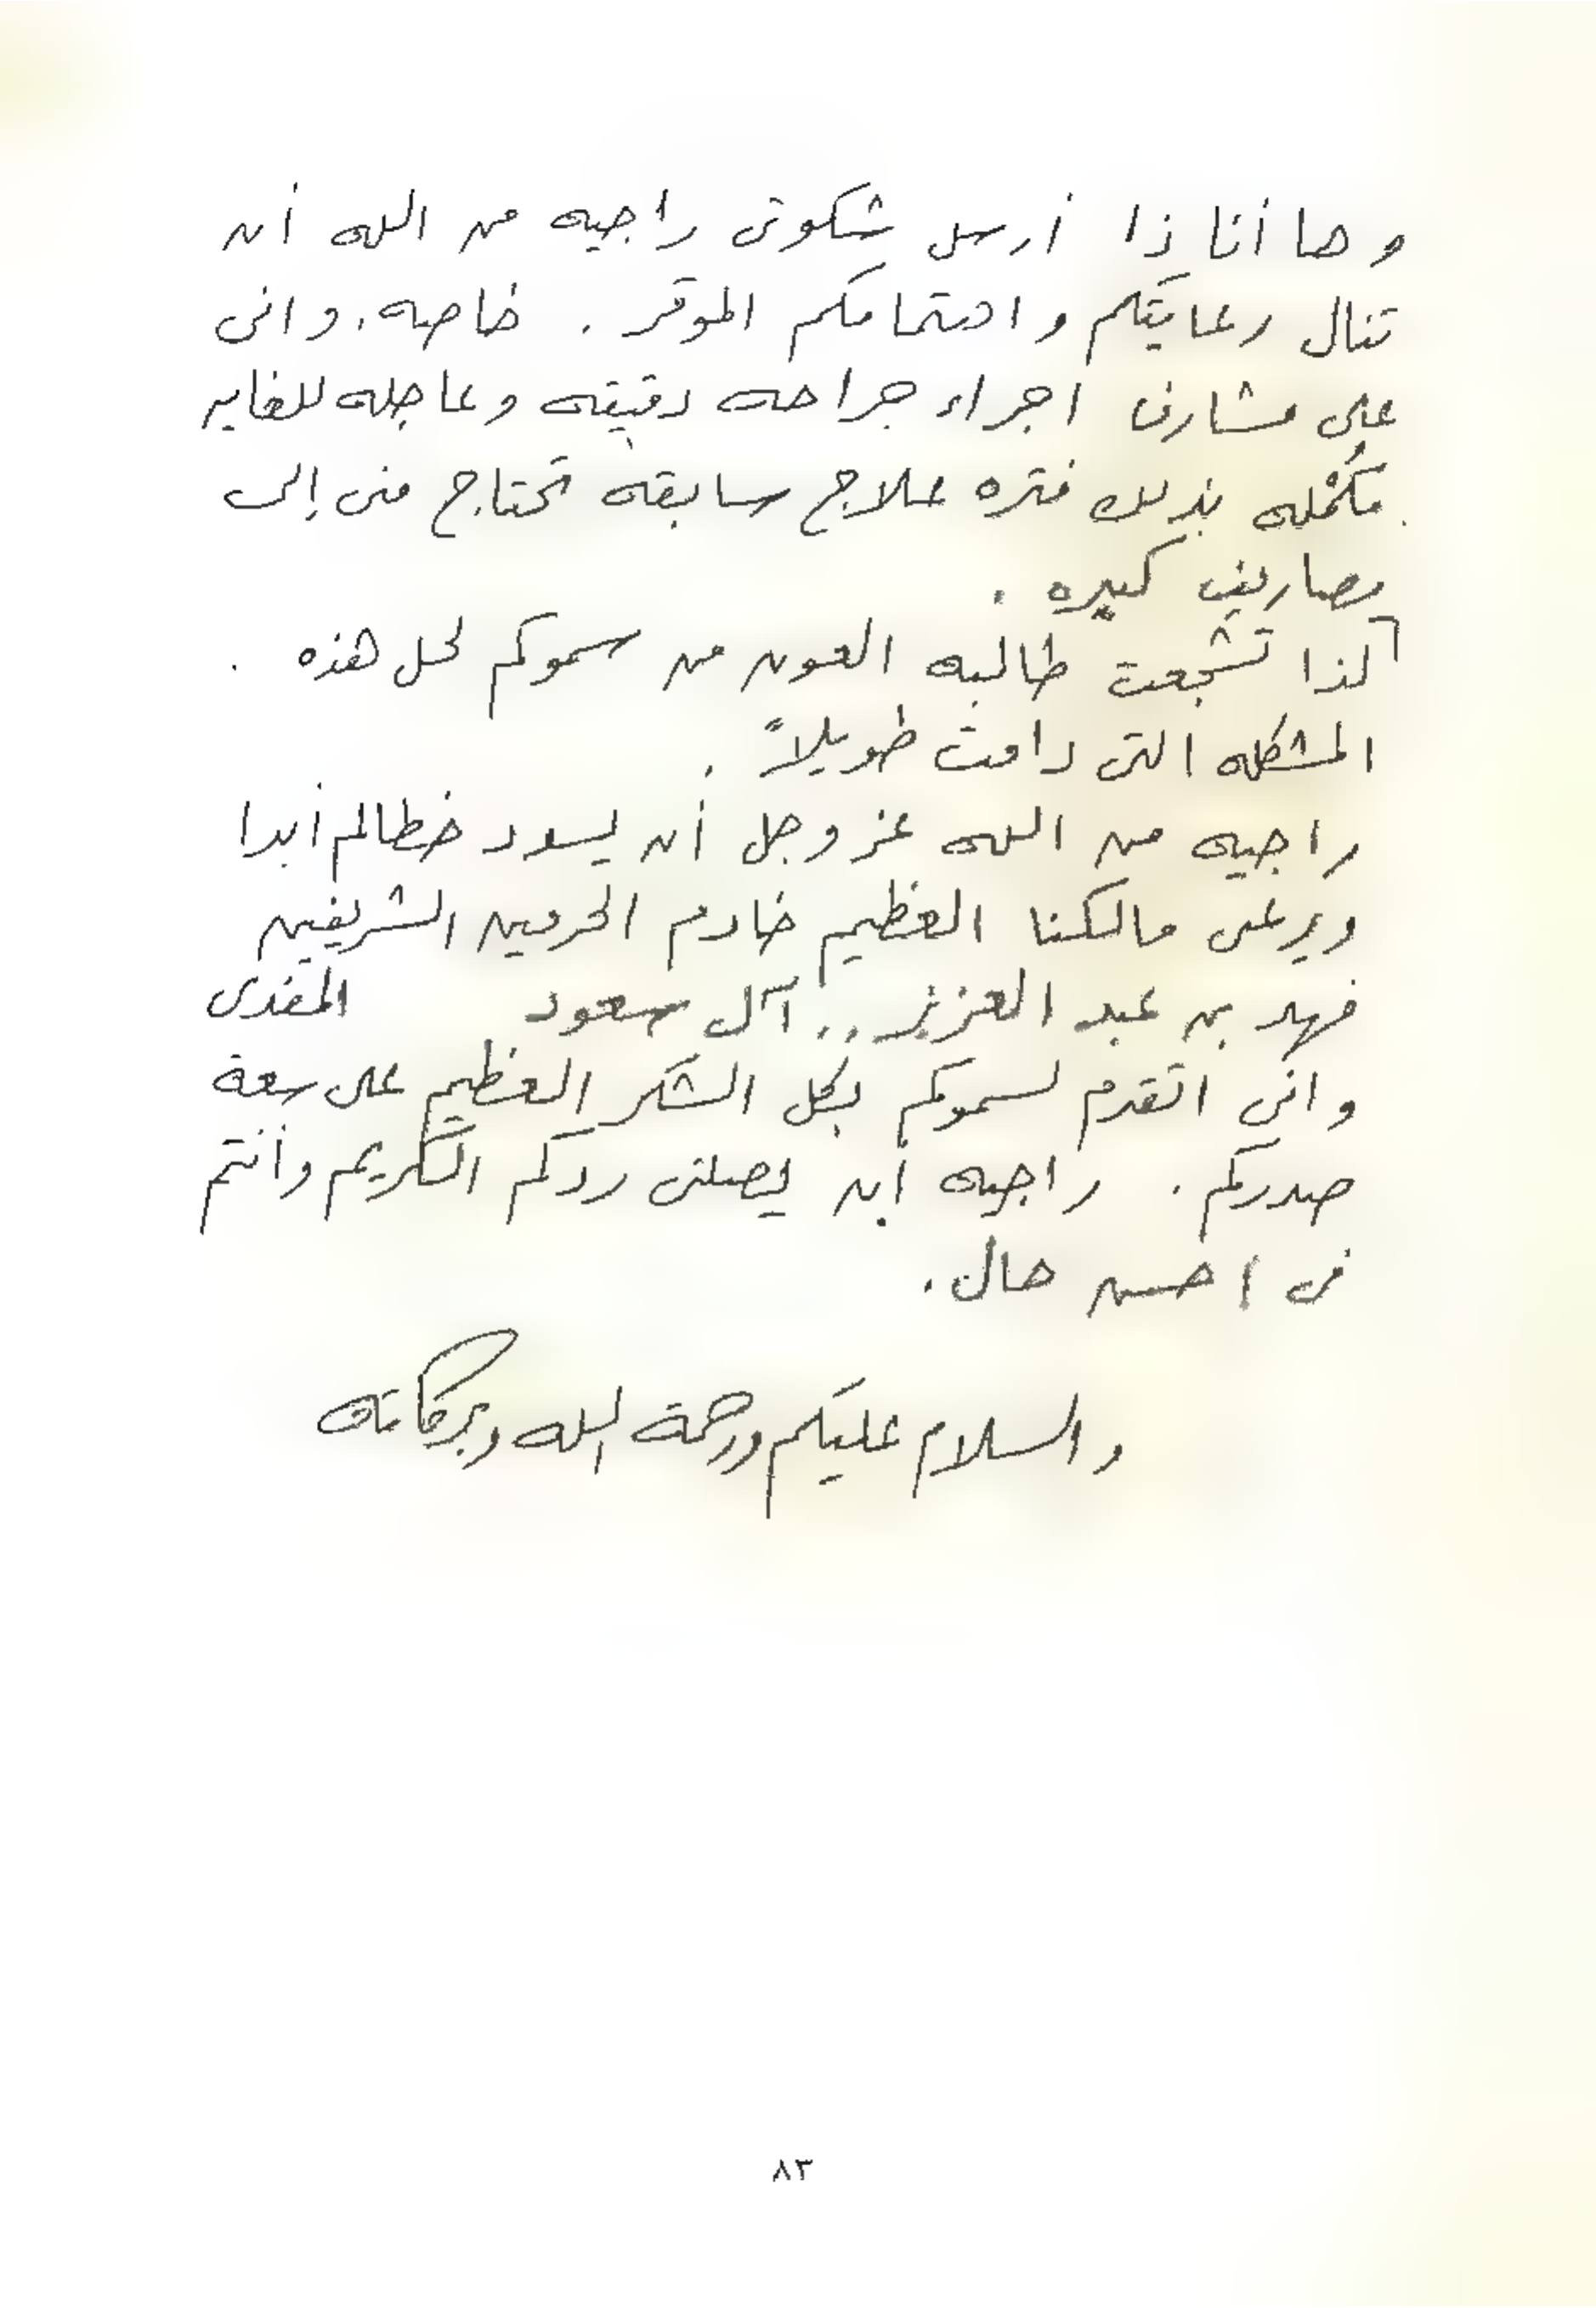 وها أنا ذا أرسل شكوتى راجيه من الله أن
تنال رعايتكم واهتمامكم الموقر . خاصه، وانى
على مشارف اجراء جراحه دقيقه وعاجله للغايه
مكمله بذلك فتره علاج سابقه تحتاج منى إلى
مصاريف كبيره .
لذا تشجعت طالبه العون من سموكم لحل هذه .
المشكله التى دامت طويلاً .
راجيه من الله عز وجل أن يسدد خطاكم أبدا
ويرعى مالكنا العظيم خادم الحرمين الشريفين
فهد بن عبد العزيز .. آل سعود المفدى
وانى اتقدم لسموكم بكل الشكر العظيم على سعة
صدركم . راجيه أن يصلنى ردكم الكريم وأنتم
فى احسن حال .
والسلام عليكم ورحمة الله وبركاته
٨٣